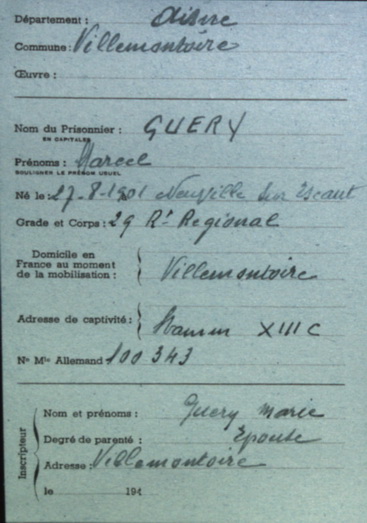 Département : Aisne
Commune : Villemontoire
Œuvre :
Nom du Prisonnier : GUERY
EN CAPITALES
Prénoms : Marcel
SOULIGNER LE PRÉNOM USUEL
Né le : 27-8-1901 Neuville sur Escaut
Grade et Corps : 29 Rt Regional
Domicile en
France au moment
de la mobilisation : Villemontoire
Adresse de captivité : Stamm XIII C
No Mle Allemand 100 343
Inscripteur
Nom et prénoms : Guery Marie
Degré de parenté : Epouse
Adresse : Villemontoire
le 194